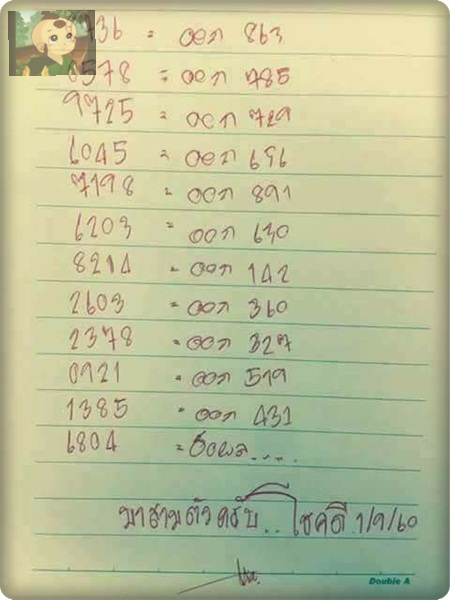 736 = ออก 863
0578 = ออก 785
9725 = ออก 729
6045 = ออก 656
7198 = ออก 891
6203 = ออก 630
8214 = ออก 142
2603 = ออก 360
2378 = ออก 327
0921 = ออก 519
1385 = ออก 431
6804 = รอผล....
มาสามตัวครับ.. โชคดี 1/9/60
Double A